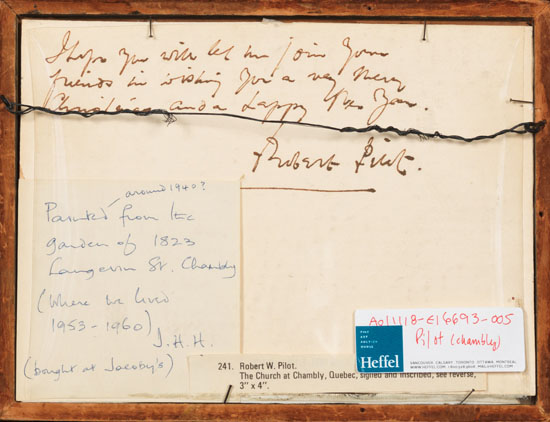 I hope you will let me join your
friends in wishing you a very Merry
Christmas and a Happy New Year.
Robert Pilot.
around 1940?
Painted from the
garden of 1823
Langevin St. Chambly
(Where we lived
1953-1960)
J.H.H.
(bought at Jacoby's)
241. Robert W. Pilot.
The Church at Chambly, Quebec, signed and inscribed, see reverse,
3" x 4".
A011118-E16693-005
Pilot (Chambly)
FINE
ART
AUCTION
HOUSE
Heffel
VANCOUVER CALGARY TORONTO OTTAWA MONTREAL
WWW.HEFFEL.COM